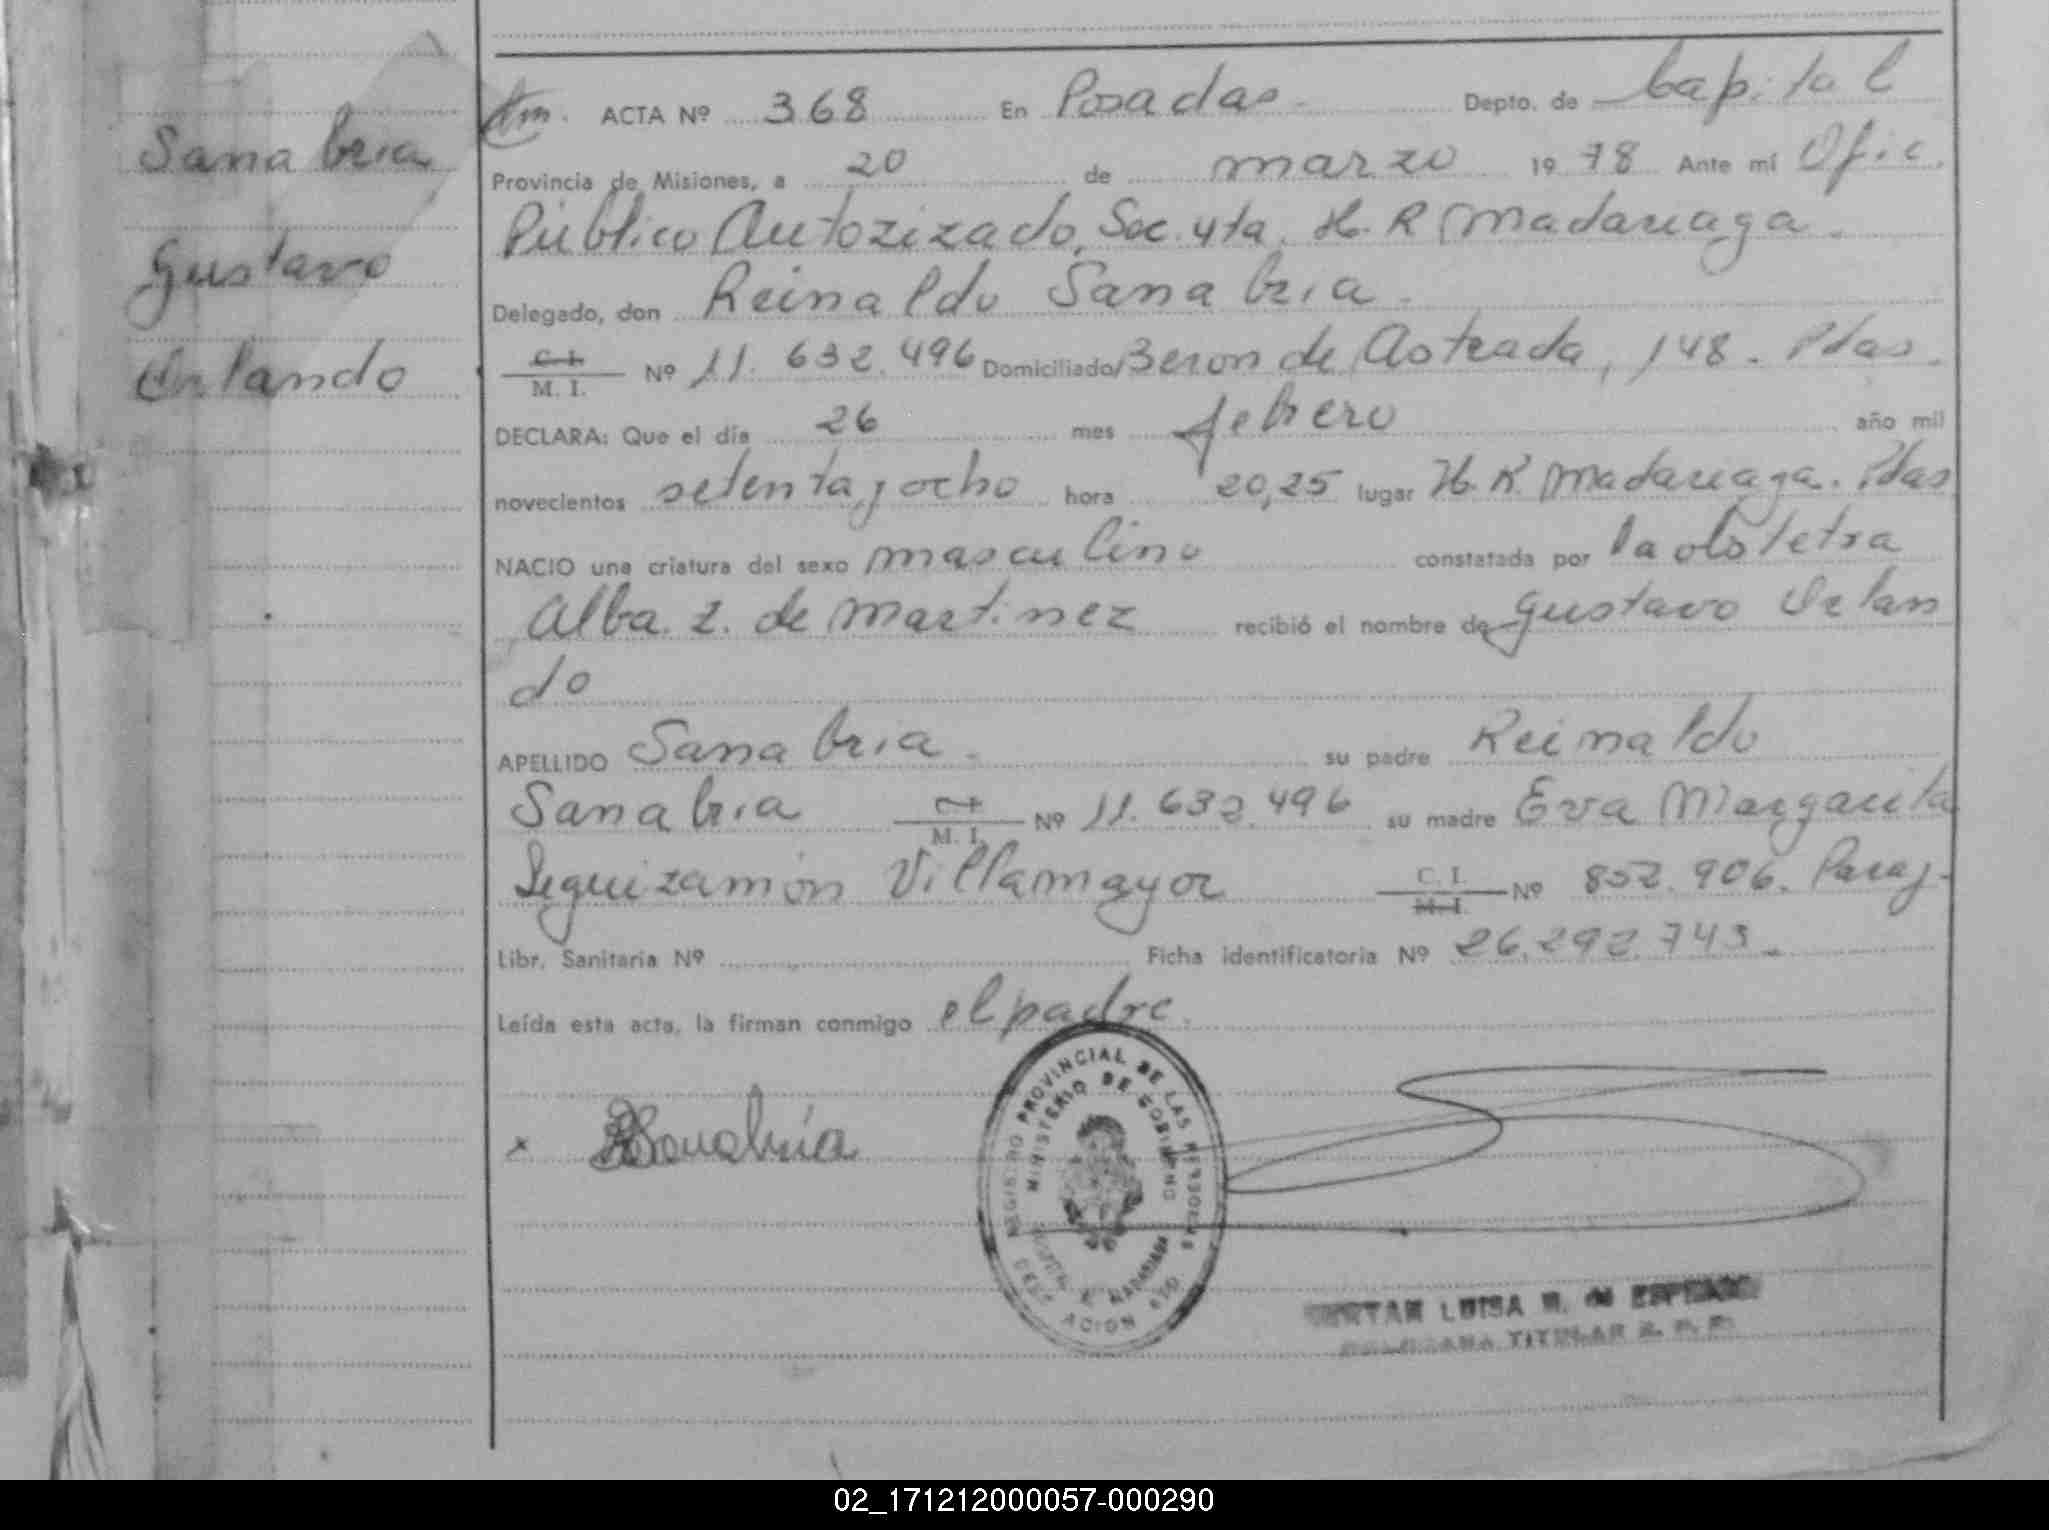 Sanabria
Gustavo
Orlando
Am. ACTA Nº 368 En Posadas. Depto. de Capital
Provincia de Misiones, a 20 de marzo 1978 Ante mí Ofic.
Público Autorizado, Sec. 4ta. H. R Madariaga.
Delegado, don Reinaldo Sanabria.
C. I.
M. I. Nº 11.632.496 Domiciliado/ Beron de Astrada, 148. Pdas.
DECLARA: Que el día 26 mes febrero año mil
novecientos setenta y ocho hora 20,25 lugar H. R. Madariaga. Pdas
NACIO una criatura del sexo masculino constatada por la obstetra
Alba. Z. de Martinez recibió el nombre de Gustavo Orlan
do
APELLIDO Sanabria. su padre Reinaldo
Sanabria C. I.
M. I. Nº 11.632.496 su madre Eva Margarita
Leguizamón Villamayor C. I.
M. I. Nº 852.906. Parag.
Libr. Sanitaria Nº Ficha identificatoria Nº 26.292.743.
Leída esta acta, la firman conmigo el padre.
x Sanabria
REGISTRO PROVINCIAL DE LAS PERSONAS
MINISTERIO DE GOBIERNO
MADARIAGA
LUISA
TITULAR
02_171212000057-000290